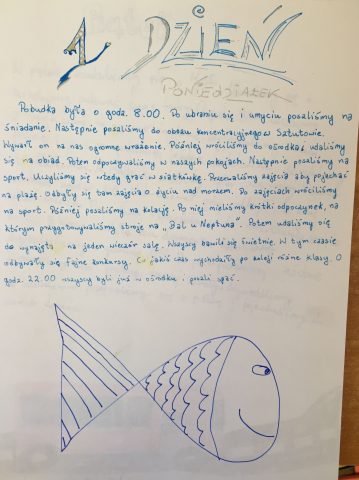 1 DZIEŃ
PONIEDZIAŁEK
Pobudka była o godz. 8.00. Po ubraniu się i umyciu poszliśmy na
śniadanie. Następnie poszliśmy do obozu koncentracyjnego w Sztutowie.
Wywarł on na nas ogromne wrażenie. Później wróciliśmy do ośrodka i udaliśmy
się na obiad. Potem odpoczywaliśmy w naszych pokojach. Następnie poszliśmy na
sport. Uczyliśmy się wtedy grać w siatkówkę. Przerwaliśmy zajęcia aby pojechać
na plażę. Odbyły się tam zajęcia o życiu nad morzem. Po zajęciach wróciliśmy
na sport. Później poszliśmy na kolację. Po niej mieliśmy krótki odpoczynek, na
którym przygotowywaliśmy stroje na „Bal u Neptuna". Potem udaliśmy się
do wynajętej na jeden wieczór salę. Wszyscy bawili się świetnie. W tym czasie
odbywały się fajne konkursy. Co jakiś czas wychodziły po kolei różne klasy. O
godz. 22.00 wszyscy byli już w ośrodku i poszli spać.